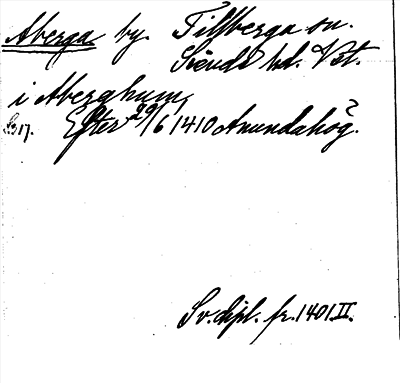 Aberga by. Tillberga sn.
Siende hd. Vst.
i Aberghum,
S. 17. Efter 29/6 1410 Anundahög?.
Sv. dipl. fr. 1401 II.